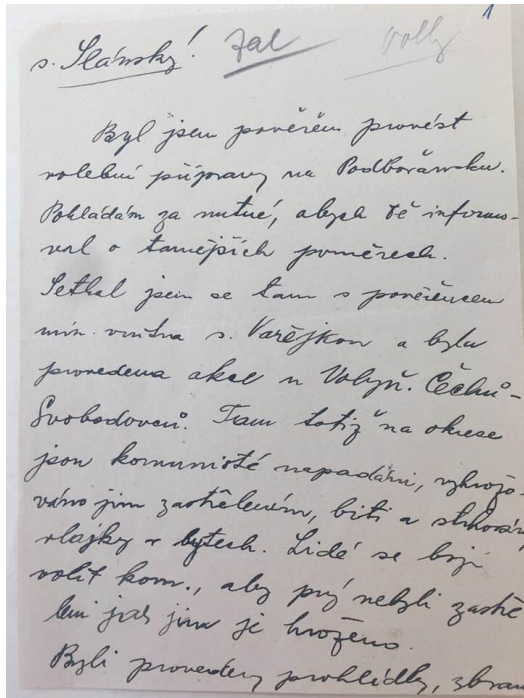 1
s. Slánský! Žal volby
Byl jsem pověřen provést
volební přípravy na Podbořansku.
Pokládám za nutné, abych Tě informo-
val o tamějších poměrech.
Setkal jsem se tam s pověřencem
min. vnitra s. Varějkou a byla
provedena akce u Volyň. Čechů-
Svobodovců. Tam totiž na okrese
jsou komunisté napadáni, vyhrožo-
váno jim zastřelením, biti a strhovány
vlajky v bytech. Lidé se bojí
volit kom., aby prý nebyli zastře
leni jak jim je hroženo.
Byli provedeny prohlídky, zbran